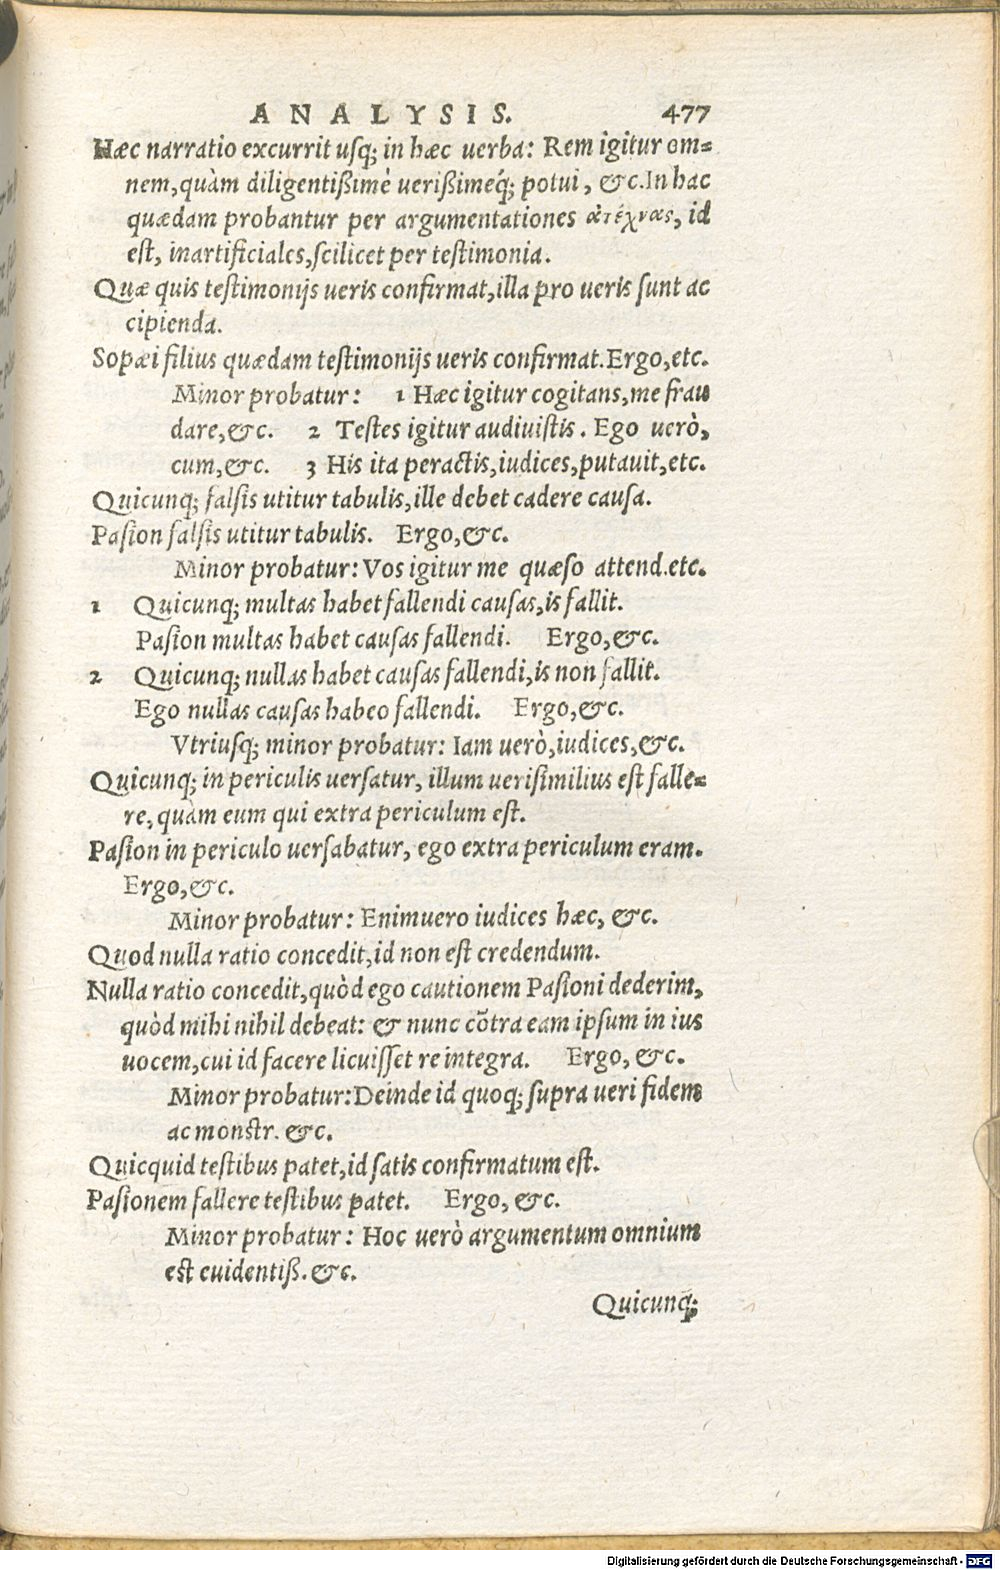 ANALYSIS. 477
Hæc narratio excurrit usq; in hæc uerba: Rem igitur om=
nem, quàm diligentißimè uerißimeq́; potui, &c. In hac
quædam probantur per argumentationes ἀτέχνας, id
est, inartificiales, scilicet per testimonia.
Quæ quis testimonijs ueris confirmat, illa pro ueris sunt ac
cipienda.
Sopæi filius quædam testimonijs ueris confirmat. Ergo, etc.
Minor probatur: 1 Hæc igitur cogitans, me frau
dare, &c. 2 Testes igitur audiuistis. Ego uerò,
cum, &c. 3 His ita peractis, iudices, putauit, etc.
Quicunq; falsis utitur tabulis, ille debet cadere causa.
Pasion falsis utitur tabulis. Ergo, &c.
Minor probatur: Vos igitur me quæso attend. etc.
1 Quicunq; multas habet fallendi causas, is fallit.
Pasion multas habet causas fallendi. Ergo, &c.
2 Quicunq; nullas habet causas fallendi, is non fallit.
Ego nullas causas habeo fallendi. Ergo, &c.
Vtriusq; minor probatur: Iam uerò, iudices, &c.
Quicunq; in periculis uersatur, illum uerisimilius est falle=
re, quàm eum qui extra periculum est.
Pasion in periculo uersabatur, ego extra periculum eram.
Ergo, &c.
Minor probatur: Enimuero iudices hæc, &c.
Quod nulla ratio concedit, id non est credendum.
Nulla ratio concedit, quòd ego cautionem Pasioni dederim,
quòd mihi nihil debeat: & nunc cõtra eam ipsum in ius
uocem, cui id facere licuisset re integra. Ergo, &c.
Minor probatur: Deinde id quoq; supra ueri fidem
ac monstr. &c.
Quicquid testibus patet, id satis confirmatum est.
Pasionem fallere testibus patet. Ergo, &c.
Minor probatur: Hoc uerò argumentum omnium
est euidentiß. &c.
Quicunq;
Digitalisierung gefördert durch die Deutsche Forschungsgemeinschaft - DFG